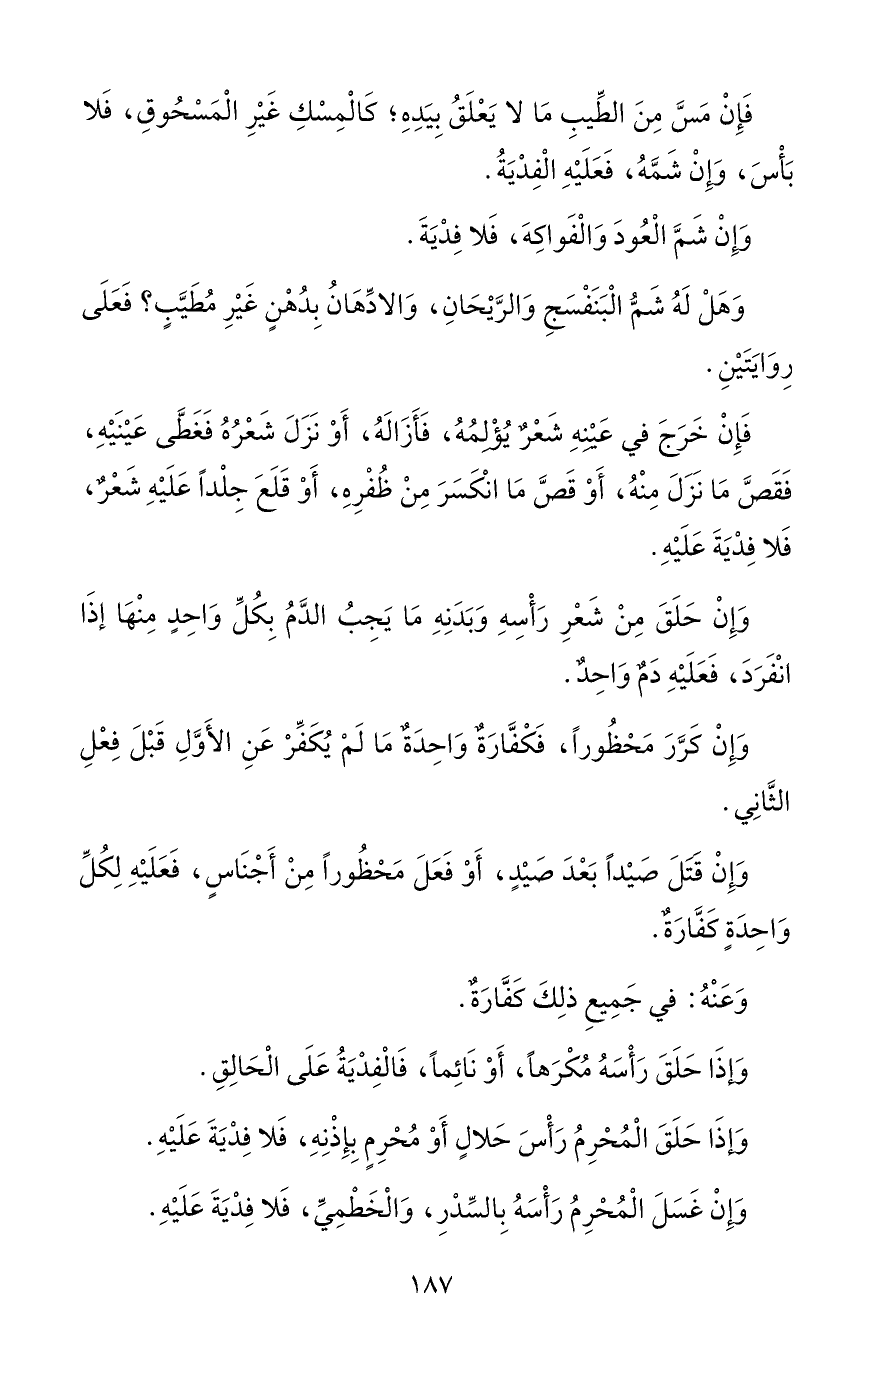 فَإِنْ مَسَّ مِنَ الطِّيبِ مَا لا يَعْلَقُ بِيَدِهِ؛ كَالْمِسْكِ غَيْرِ الْمَسْحُوقِ، فَلا
بَأْسَ، وَإِنْ شَمَّهُ، فَعَلَيْهِ الْفِدْيَةُ.
وَإِنْ شَمَّ الْعُودَ وَالْفَواكِهَ، فَلا فِدْيَةَ.
وَهَلْ لَهُ شَمُّ الْبَنَفْسَجِ وَالرَّيْحَانِ، وَالادِّهَانُ بِدُهْنٍ غَيْرِ مُطَيَّبٍ؟ فَعَلَى
رِوَايَتَيْنِ.
فَإِنْ خَرَجَ في عَيْنِهِ شَعْرٌ يُؤْلِمُهُ، فَأَزَالَهُ، أَوْ نَزَلَ شَعْرُهُ فَغَطَّى عَيْنَيْهِ،
فَقَصَّ مَا نَزَلَ مِنْهُ، أَوْ قَصَّ مَا انْكَسَرَ مِنْ ظُفْرِهِ، أَوْ قَلَعَ جِلْداً عَلَيْهِ شَعْرٌ،
فَلا فِدْيَةَ عَلَيْهِ.
وَإِنْ حَلَقَ مِنْ شَعْرِ رَأْسِهِ وَبَدَنِهِ مَا يَجِبُ الدَّمُ بِكُلِّ وَاحِدٍ مِنْهَا إذَا
انْفَرَدَ، فَعَلَيْهِ دَمٌ وَاحِدٌ.
وَإِنْ كَرَّرَ مَحْظُوراً، فَكْفَّارَةٌ وَاحِدَةٌ مَا لَمْ يُكَفِّرْ عَنِ الأَوَّلِ قَبْلَ فِعْلِ
الثَّانِي.
وَإِنْ قَتَلَ صَيْداً بَعْدَ صَيْدٍ، أَوْ فَعَلَ مَحْظُوراً مِنْ أَجْنَاسٍ، فَعَلَيْهِ لِكُلِّ
وَاحِدَةٍ كَفَّارَةٌ.
وَعَنْهُ: في جَمِيعِ ذلِكَ كَفَّارَةٌ.
وَإذَا حَلَقَ رَأْسَهُ مُكْرَهاً، أَوْ نَائِماً، فَالْفِدْيَةُ عَلَى الْحَالِقِ.
وَإذَا حَلَقَ الْمُحْرِمُ رَأْسَ حَلالٍ أَوْ مُحْرِمٍ بِإِذْنِهِ، فَلا فِدْيَةَ عَلَيْهِ.
وَإِنْ غَسَلَ الْمُحْرِمُ رَأْسَهُ بِالسِّدْرِ، وَالْخَطْمِيِّ، فَلا فِدْيَةَ عَلَيْهِ.
١٨٧